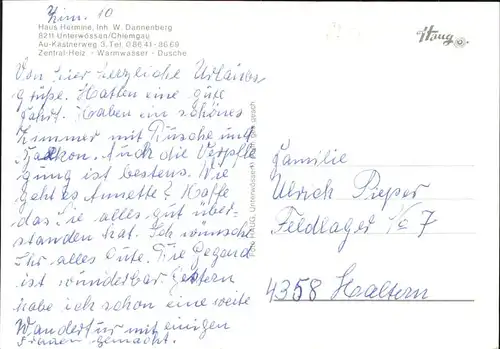 Zim. 10
Haus Hermine, Inh. W. Dannenberg
8211 Unterwössen/Chiemgau
Au-Kastnerweg 3, Tel. 08641-8669
Zentral-Heiz - Warmwasser - Dusche
Haug
Von hier herzliche Urlaubs
grüße. Hatten eine gute
Fahrt. Haben ein schönes
Zimmer mit Dusche und
Balkon. Auch die Verpfle
gung ist bestens. Wie
geht es Annette? Hoffe
das Sie alles gut über-
standen hat. Ich wünsche
ihr alles Gute. Die Gegend
ist wunderbar. Gestern
habe ich schon eine weite
Wandertur mit einigen
Frauen gemacht.
Familie
Ulrich Pieper
Feldlager 7
4358 Haltern